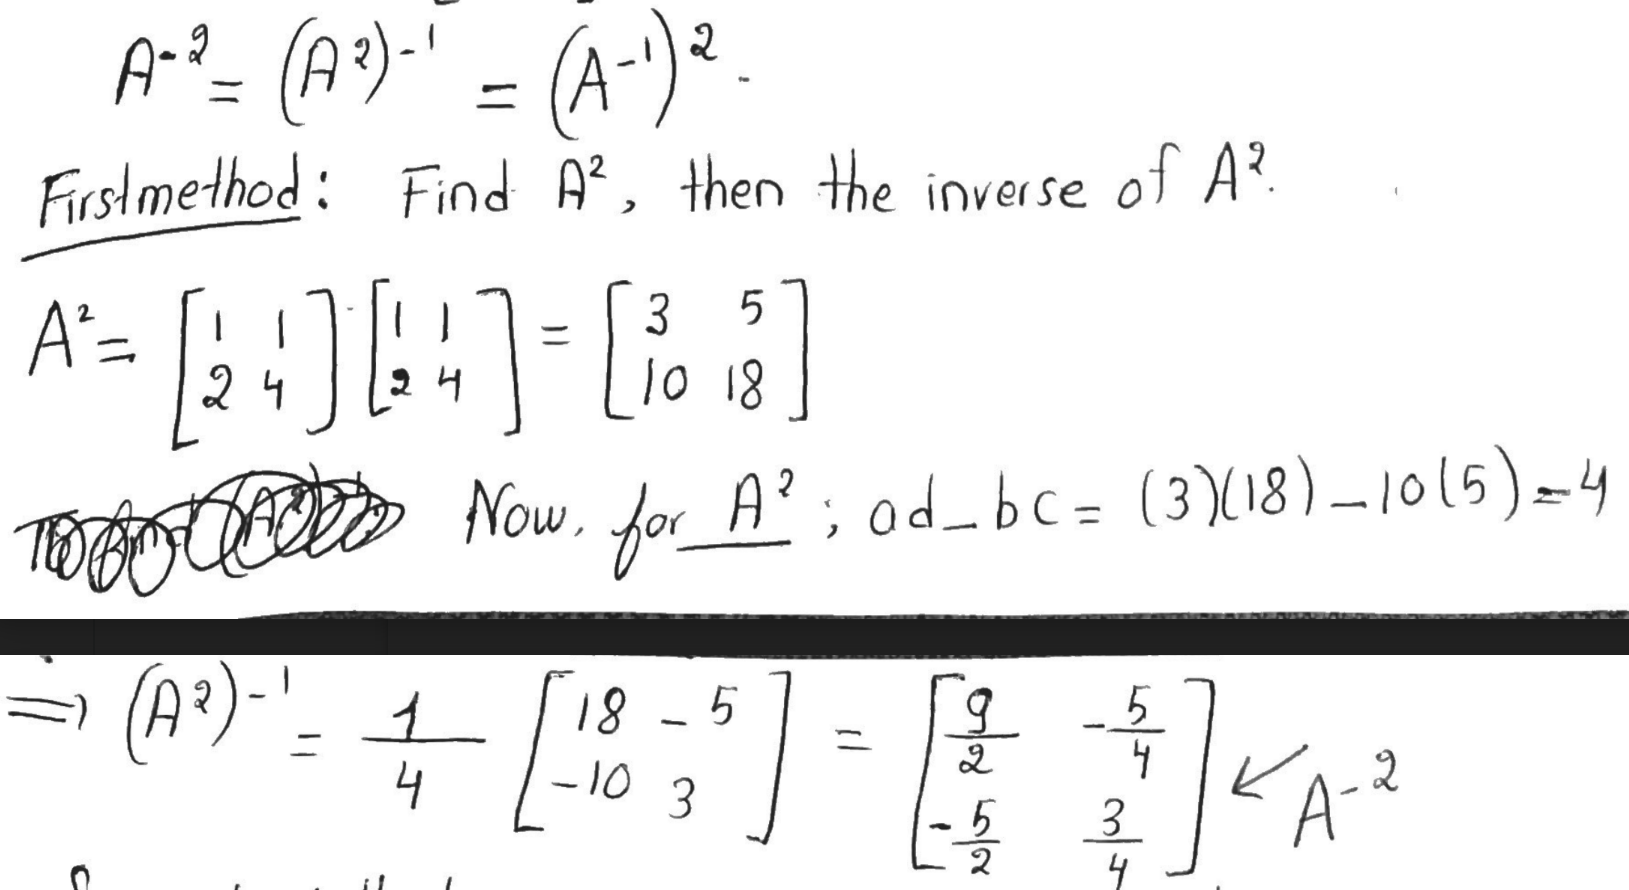 A⁻² = (A²)⁻¹ = (A⁻¹)².
First method: Find A², then the inverse of A².
A² = [1 1; 2 4] · [1 1; 2 4] = [3 5; 10 18]
Now, for A² ; ad - bc = (3)(18) - 10(5) = 4
⇒ (A²)⁻¹ = 1/4 [18 -5; -10 3] = [9/2 -5/4; -5/2 3/4] ↙ A⁻²